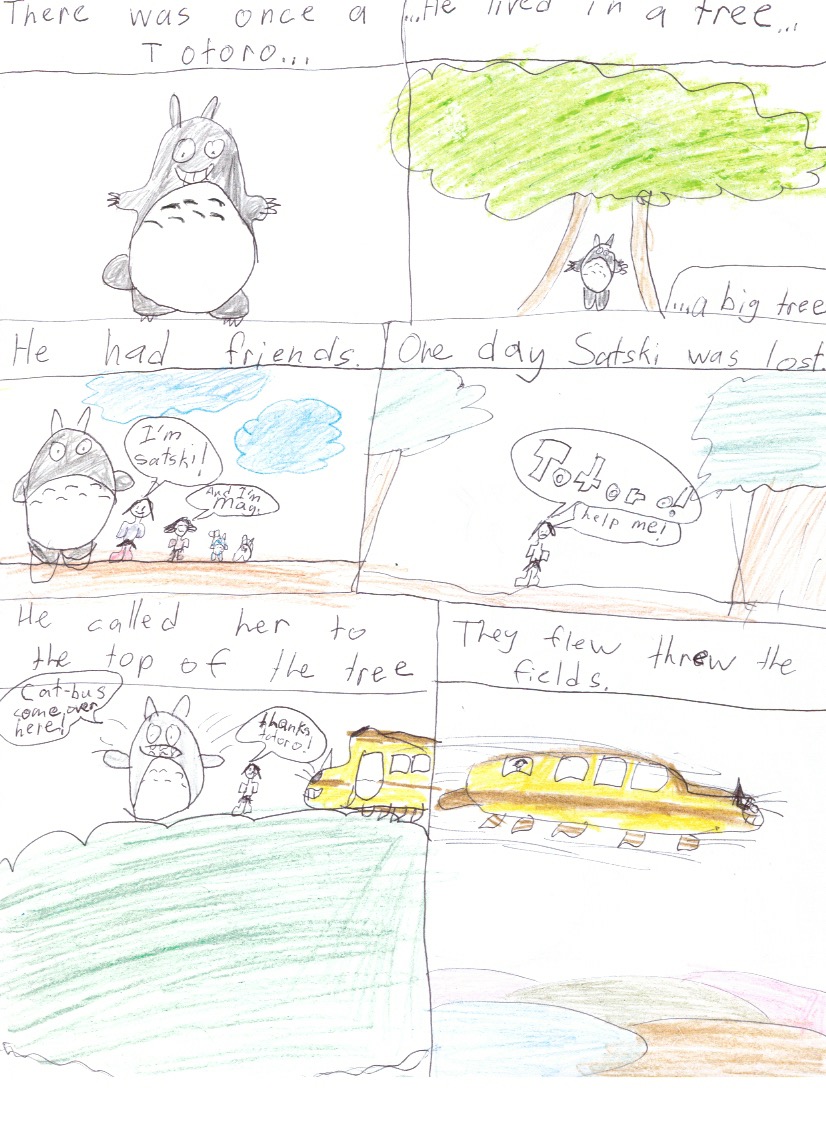 There was once a
Totoro...
...He lived in a tree...
...a big tree
He had friends.
I'm
Satski!
And I'm
Mag.
One day Satski was lost.
Totoro!
help me!
He called her to
the top of the tree
Cat-bus
come over
here!
thanks
totoro!
They flew threw the
fields.